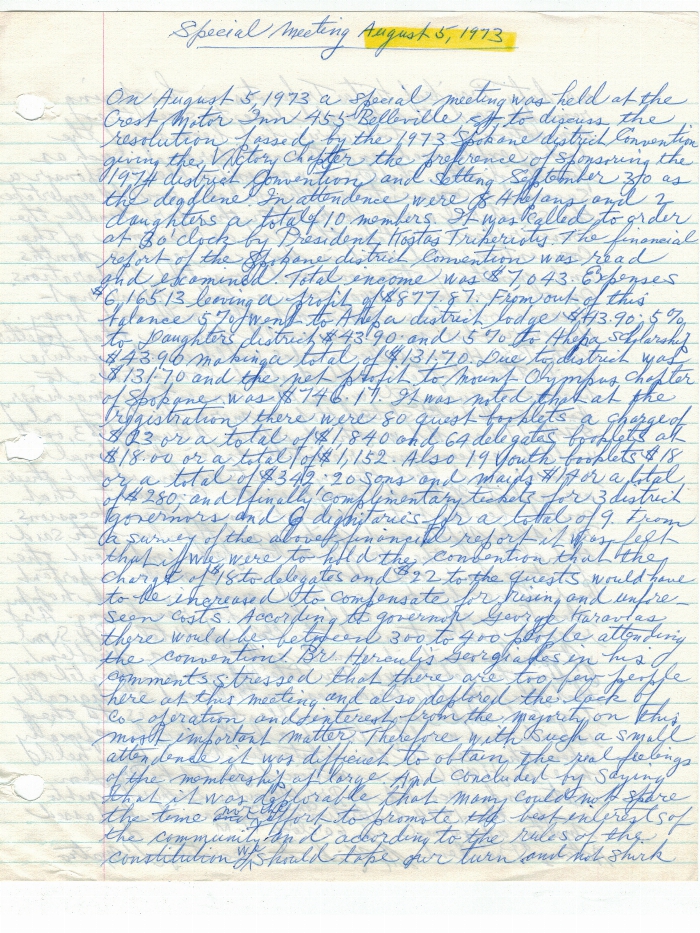 Special Meeting August 5, 1973
On August 5, 1973 a special meeting was held at the
Crest Motor Inn 455 Belleville to discuss the
resolution passed by the 1973 Spokane district Convention
giving the Victory Chapter the preference of sponsoring the
1974 district Convention and setting September 30 as
the deadline. In attendance were 8 Ahepans and 2
daughters a total of 10 members. It was called to order
at 3 o clock by President Kostas Triberiotis. The financial
report of the Spokane district Convention was read
and examined. Total income was $7,043. Expenses
$6,165.13 leaving a profit of $877.87. From out of this
balance 5% went to Ahepa district lodge $43.90. 5%
to Daughters district $43.90 and 5% to Ahepa Scholarship
$43.90 making a total of $131.70. Due to district was
$131.70 and the net profit to Mount Olympus chapter
of Spokane was $746.17. It was noted that at the
registration there were 80 guest booklets a charge of
$23 or a total of $1,840 and 64 delegates booklets at
$18.00 or a total of $1,152. Also 19 Youth booklets $18
or a total of $342. 20 Sons and maids $14 or a total
of $280, and finally complimentary tickets for 3 district
governors and 6 dignitaries for a total of 9. From
a survey of the above financial report it was felt
that if we were to hold the convention that the
charge of $18 to delegates and $22 to the guests would have
to be increased to compensate for rising and unfore-
seen costs. According to governor George Karavias
there would be between 300 to 400 people attending
the convention. Br. Hercules Georgiades in his
comments stressed that there are too few people
here at this meeting and also deplored the lack of
co-operation and interest from the majority on this
most important matter. Therefore with such a small
attendance it was difficult to obtain the real feelings
of the membership at large. And concluded by saying
that it was deplorable that many could not spare
the time effort to promote the best interests of
the community and according to the rules of the
constitution we should take our turn and not shirk